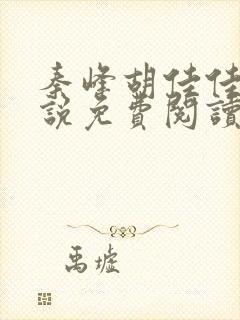 秦峰胡佳佳
說免費閱讀
禹墟